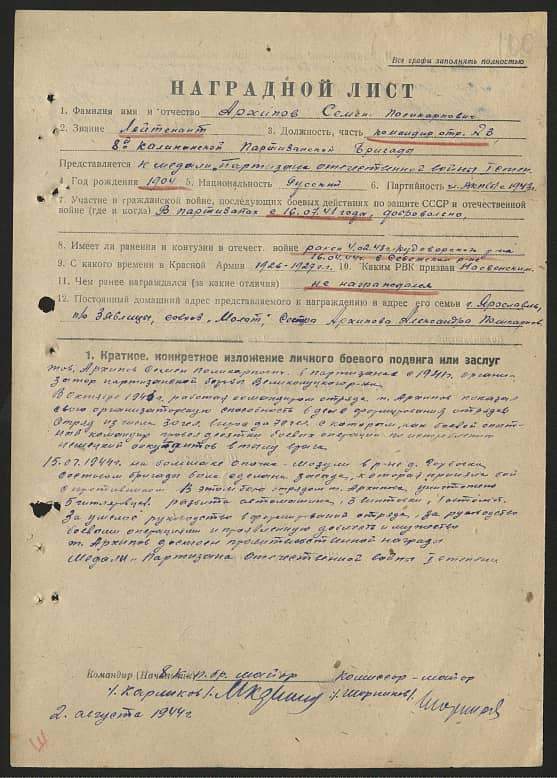 Все графы заполнять полностью
НАГРАДНОЙ ЛИСТ
1. Фамилия имя и отчество Архипов Семен Поликарпович
2. Звание Лейтенант 3. Должность, часть командир отр. 23
8ой Калининской Партизанской Бригады
Представляется к медали „Партизана отечественной войны I степ.
4. Год рождения 1904 5. Национальность Русский 6. Партийность 1943г.
7. Участие в гражданской войне, последующих боевых действиях по защите СССР и отечественной
войне (где и когда) В партизанах с 16.07.41 года, добровольно,
8. Имеет ли ранения и контузии в отечест. войне ранен 4.02.43г. р-на
16.04.44г. в р-не
9. С какого времени в Красной Армии 1926-1927г.г. 10. Каким РВК призван
11. Чем ранее награждался (за какие отличия) не награждался
12. Постоянный домашний адрес представляемого к награждению и адрес его семьи г. Ярославль,
п/о совхоз „Молот", Сестра Архипова Александра
1. Краткое, конкретное изложение личного боевого подвига или заслуг
тов. Архипов Семен Поликарпович в партизанах с 1941г. органи-
затор партизанской борьбы Великолуцкого р-на.
В октябре работая командиром отряда т. Архипов показал
свою организаторскую способность в деле формирования отрядов
Отряд из числа 30 чел. вырос до 70 чел. с которым, как боевой
командир провел десятки боевых операций по истреблению
немецких оккупантов в тылу врага.
15.07.1944г. на большаке Опочка - в р-не д.
составом бригады была сделана засада, которая приняла бой
с противником. В этом бою отрядом т. Архипова уничтожено
разбита автомашина, 3 винтовки,
За умелое руководство и формирование отряда, за руководство
боевыми операциями и проявленную доблесть и мужество
т. Архипов достоин правительственной награды
Медали - Партизана Отечественной войны I степени
Командир (Начальник) 8 к.п.бр. майор Комиссар - майор
/. Карликов /. /. Шорников /.
2. августа 1944г